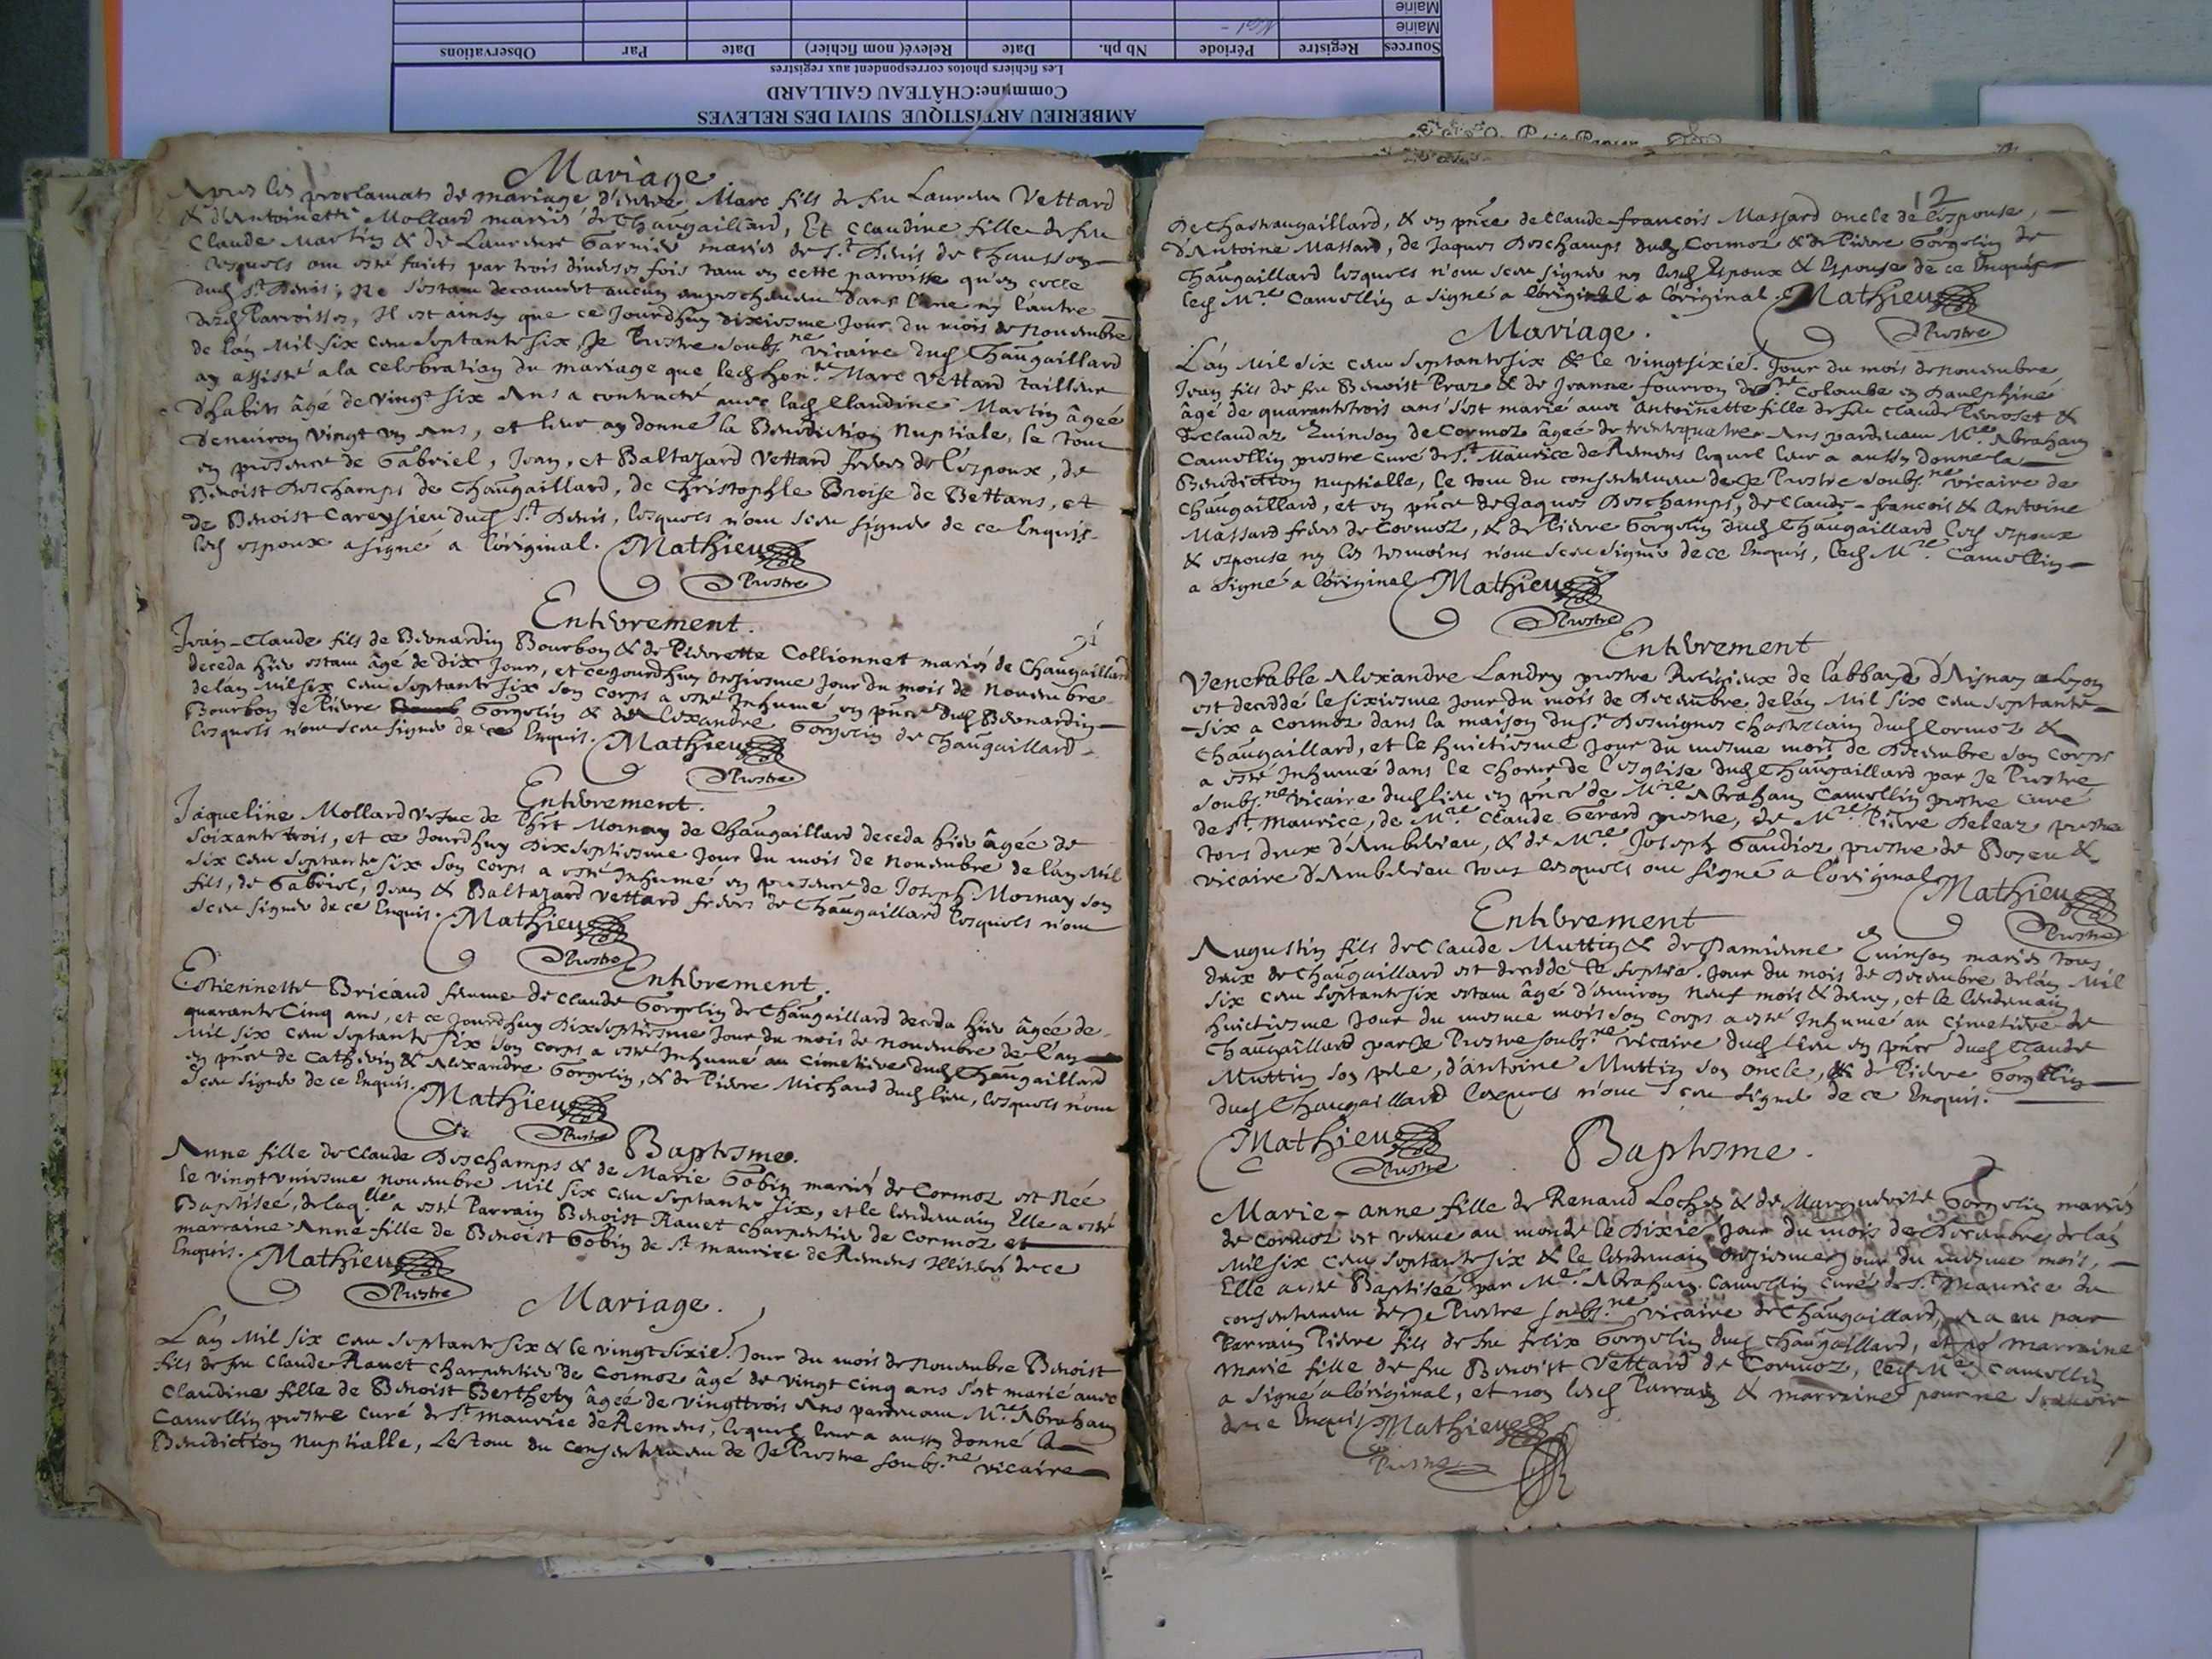 AMBERIEU ARTISTIQUE SUIVI DES RELEVES
Commune:CHÂTEAU GAILLARD
Les fichiers photos correspondent aux registres
Sources Registre Période Nb ph. Date Relevé( nom fichier) Date Par Observations
Mairie
Mairie
Mariage.
Apres les proclamats de mariage d'entre Marc fils de feu Laurens Vettard
& d'Antoinette Mollard mariés de Chaugaillard, Et Claudine fille de feu
Claude Martin & de Laurence Garnier mariés de St. Denis de Chausson
lesquels ont esté faicts par trois diverses fois tant en cette parroisse qu'en celle
dud St Denis, Ne s'estant decouvert aucun empeschement dans l'une ny l'autre
desd Parroisses, Il est ainsy que ce Jourdhuy dixiesme Jour du mois de Novembre
de lán Mil six cens septante six, Je Prestre soubs.né vicaire dud Chaugaillard
ay assisté a la celebration du mariage que led hon.te Marc Vettard tailleur
d'habits âgé de vingt six Ans a contracté avec lad Claudine Martin âgée
d'environ vingt un Ans, et leur ay donné la Benediction Nuptiale, le tout
en presence de Gabriel, Jean, et Baltazard Vettard freres de l'espoux, de
Benoist Deschamps de Chaugaillard, de Christophle Broise de Bettans, et
de Benoist Careysieu dud St Denis, lesquels n'ont sceu signer de ce Enquis
led espoux a signé a l'original. Mathieu
Prestre
Enterrement.
Jean-Claude fils de Bernardin Bourbon & de Pierrette Collionnet mariés de Chaugaillard
deceda hier estant âgé de dix Jours, et cejourdhuy onziesme Jour du mois de Novembre
de lán Mil six cens septante six son corps a esté Inhumé en pnce dud Bernardin
Bourbon de Pierre Gorgolin & de Alexandre Gorgolin de Chaugaillard
lesquels n'ont sceu signer de ce Enquis. Mathieu
Prestre
Enterrement.
Jaqueline Mollard vefue de Mornay de Chaugaillard deceda hier âgée de
soixante trois, et ce Jourdhuy Dixseptiesme Jour du mois de Novembre de lán Mil
six cens septante six son corps a esté Inhumé en presence de Joseph Mornay son
fils, de Gabriel, Jean & Baltazard Vettard freres de Chaugaillard lesquels n'ont
sceu signer de ce Enquis. Mathieu
Prestre
Enterrement.
Estiennette Bricaud femme de Claude Gorgolin de Chaugaillard deceda hier âgée de
quarante Cinq ans, et ce Jourdhuy Dixseptiesme Jour du mois de Novembre de l'an
Mil six cens septante six son corps a esté Inhumé au Cimetiere dud Chaugaillard
en pnce de Catherin & Alexandre Gorgolin, & de Pierre Michaud dud lieu, lesquels n'ont
sceu signer de ce Enquis. Mathieu
Prestre
Baptesme.
Anne fille de Claude Deschamps & de Marie Gobin mariés de Cormoz est Née
le vingt uniesme Novembre Mil six cens septante six, et le lendemain Elle a esté
Baptiseé, de laq.lle a esté Parrain Benoist Ravet Charpentier de Cormoz et
marraine Anne fille de Benoist Gobin de St Maurice de Remens Illiterés de ce
Enquis. Mathieu
Prestre
Mariage.
L'án Mil six cens septante six & le vingt sixie. Jour du mois de Novembre Benoist
fils de feu Claude Ravet charpentier de Cormoz âgé de vingt Cinq ans s'est marié avec
Claudine fille de Benoist Berthety âgeé de vingttrois Ans pardevant Mre Abraham
Camollin prestre curé de St Maurice de Remens, lequel leur a aussy donné la
Benediction Nuptialle, Le tout du consentement de Je Prestre soubs.né vicaire
12
de Chasteaugaillard, & en pnce de Claude-francois Massard oncle de l'espouse,
d'Antoine Massard, de Jaques Deschamps dud Cormoz & de Pierre Gorgolin de
Chaugaillard lesquels n'ont sceu signer ny lesd Espoux & Espouse de ce Enquis
led Mre Camollin a signé a l'original a l'original. Mathieu
Prestre
Mariage.
L'án Mil six cens septante six & le vingtsixie. Jour du mois de novembre
Jean fils de feu Benoist Praz & de Jeanne fourron de Ste Colombe en Daulphiné
âgé de quarantetrois ans s'est marié avec Antoinette fille de feu Claude Perroset &
de Claudaz Quinson de Cormoz âgeé de trentequatre Ans pardevant Mre Abraham
Camollin prestre curé de St Maurice de Remens lequel leur a aussy donné la
Benediction nuptialle, le tout du consentement de Je Prestre soubs.né vicaire de
Chaugaillard, et en pnce de Jaques Deschamps, de Claude-francois & Antoine
Massard freres de Cormoz, & de Pierre Gorgolin dud Chaugaillard lesd espoux
& espouse ny les tesmoins n'ont sceu signer de ce Enquis, led Mre. Camollin
a signé a l'original Mathieu
Prestre
Enterrement
Venerable Alexandre Landry prestre Religieux de l'abbaye d'Aisnay a Lyon
est decedé le sixiesme Jour du mois de Decembre de lán Mil six cens septante
-six a Cormoz dans la maison du Sr Desvignes Chastelain dud Cormoz &
Chaugaillard, et le huictiesme Jour du mesme mois de Decembre son Corps
a esté Inhumé dans le choeur de l'esglise dud Chaugaillard par Je Prestre
soubs.né vicaire dud lieu en pnce de Mre Abraham Camollin prestre curé
de St. Maurice, de Mre Claude Gerard prestre, de Mre Pierre Deleaz prestre
tous deux d'Amberieu, & de Mre Joseph Gaudioz prestre de &
vicaire d'Amberieu tous lesquels ont signé a l'original Mathieu
Prestre
Enterrement
Augustin fils de Claude Muttin & de Damienne Quinson mariés tous
deux de Chaugaillard est decedé le septie. Jour du mois de Decembre de lán Mil
six cens septante six estant âgé d'environ Neuf mois & demy, et le lendemain
huictiesme Jour du mesme mois son Corps a esté Inhumé au Cimetiere de
Chaugaillard par Je Prestre soubs.né vicaire dud lieu en pnce dud Claude
Muttin son pere, d'antoine Muttin son oncle, & de Pierre Gorgolin
dud Chaugaillard lesquels n'ont sceu signer de ce Enquis.
Mathieu
Prestre
Baptesme.
Marie-anne fille de Renaud Loches & de Marguerite Gorgolin mariés
de Cormoz est venue au monde le Dixie. Jour du mois de Decembre de lán
Mil six cens septante six & le lendemain onziesme Jour du mesme mois,
Elle a esté Baptiseé par Mre. Abraham Camollin Curé de St Maurice du
consentement de Je Prestre soubs.né vicaire de Chaugaillard, a eu par
Parrain Pierre fils de feu felix Gorgolin dud Chaugaillard, et po marraine
Marie fille de feu Benoist Vettard de Cormoz, led Mre Camollin
a signé a l'original, et non lesd Parrain & marraine pour ne scavoir
de ce Enquis Mathieu
Prestre